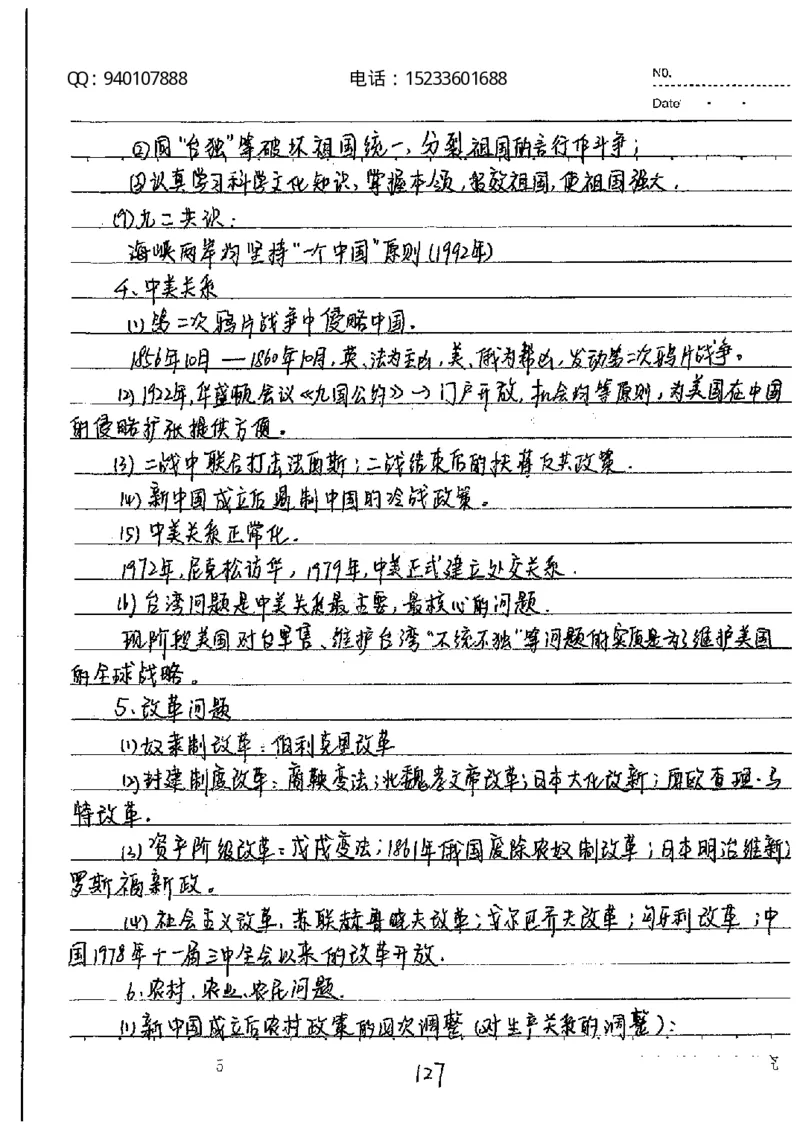 QQ：940107888 电话：15233601688 NO.
Date · ·
③同“台独”等破坏祖国统一，分裂祖国的言行作斗争；
④认真学习科学文化知识，掌握本领，报效祖国，使祖国强大．
(9)九二共识：
海峡两岸均坚持“一个中国”原则(1992年)
4、中美关系
(1)第二次鸦片战争中侵略中国．
1856年10月—1860年10月，英、法为主凶，美、俄为帮凶，发动第二次鸦片战争。
(2)1922年，华盛顿会议《九国公约》→门户开放，机会均等原则，为美国在中国
的侵略扩张提供方便。
(3)二战中联合打击法西斯；二战结束后的扶蒋反共政策．
(4)新中国成立后遏制中国的冷战政策。
(5)中美关系正常化．
1972年，尼克松访华，1979年，中美正式建立外交关系．
(6)台湾问题是中美关系最主要，最核心的问题．
现阶段美国对台军售、维护台湾“不统不独”等问题的实质是为了维护美国
的全球战略。
5、改革问题
(1)奴隶制改革：伯利克里改革
(2)封建制度改革：商鞅变法；北魏孝文帝改革；日本大化改新；西欧查理·马
特改革．
(3)资产阶级改革：戊戌变法；1861年俄国废除农奴制改革；日本明治维新；
罗斯福新政。
(4)社会主义改革．苏联赫鲁晓夫改革；戈尔巴乔夫改革；匈牙利改革；中
国1978年十一届三中全会以来的改革开放．
6、农村、农业、农民问题．
(1)新中国成立后农村政策的四次调整(对生产关系的调整)：
127